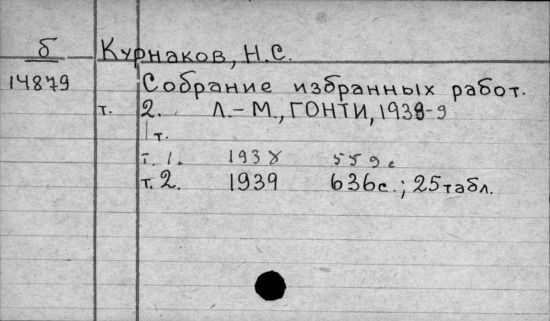 б Курнаков, Н.С.
14879 Собрание избранных работ.
т. 2. Л.-М., ГОНТИ, 1938-9
т.
т. 1. 1938 559 с
т. 2. 1939 636с.; 25табл.